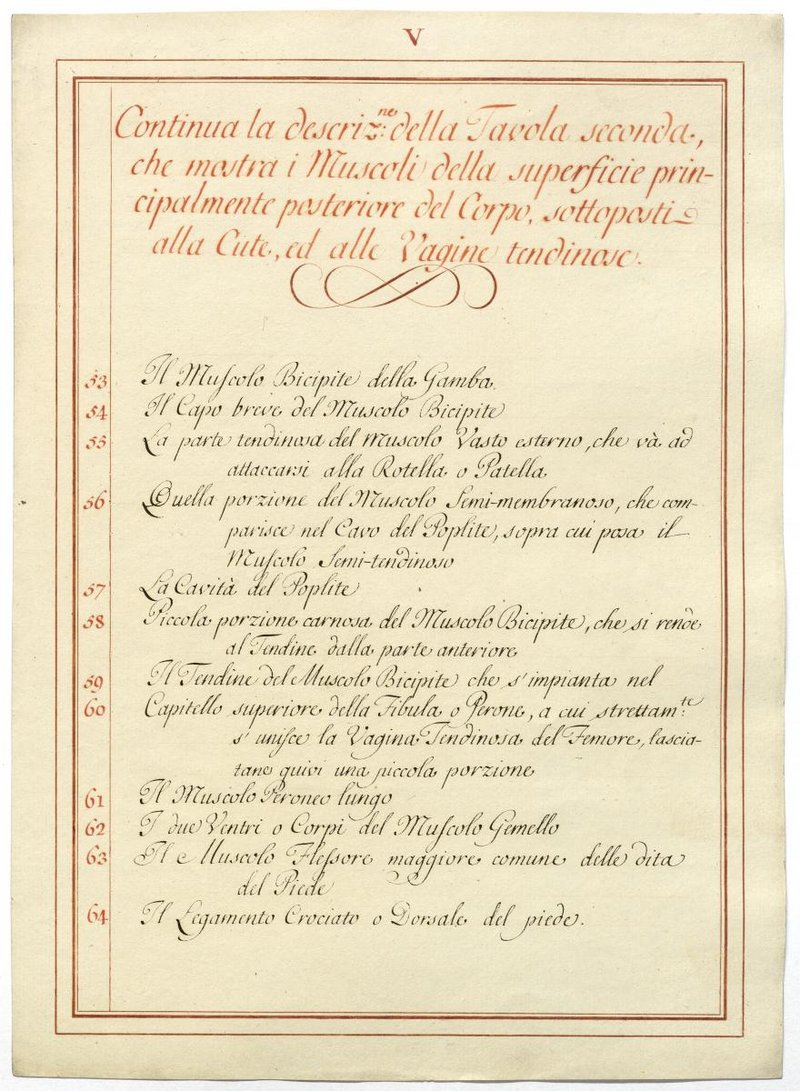 V
Continua la descriz.ne della Tavola seconda,
che mostra i Muscoli della superficie prin-
cipalmente posteriore del Corpo, sottoposti
alla Cute, ed alle Vagine tendinose.
53 Il Muſcolo Bicipite della Gamba
54 Il Capo breve del Muscolo Bicipite
55 La parte tendinosa del Muscolo Vasto esterno, che và ad
attaccarsi alla Rotella o Patella
56 Quella porzione del Muscolo Semi-membranoso, che com-
parisce nel Cavo del Poplite, sopra cui posa il
Muſcolo Semi-tendinoso
57 La Cavità del Poplite
58 Piccola porzione carnosa del Muscolo Bicipite, che si rende
al Tendine dalla parte anteriore
59 Il Tendine del Muscolo Bicipite che s'impianta nel
60 Capitello superiore della Fibula o Perone, a cui strettam.te
s'uniſce la Vagina Tendinosa del Femore, lascia-
tane quivi una piccola porzione
61 Il Muscolo Peroneo lungo
62 I due Ventri o Corpi del Muſcolo Gemello
63 Il Muscolo Fleſsore maggiore comune delle dita
del Piede
64 Il Legamento Crociato o Dorsale del piede.